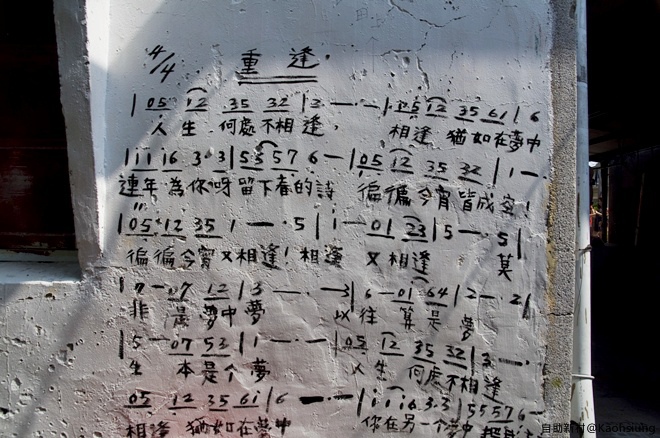 4/4 重逢
| 05 12 35 32 | 2 — · — · | 05 12 35 61 | 6
人生何處不相逢， 相逢猶如在夢中
| i i 16 3·3 | 55 57 6 — | 05 12 35 32 | 1 — ·
連年為你呀留下春的詩 徧徧今宵皆成空！
| 05 12 35 1 — · 5 | i — 01 23 | 5 — · 5 |
徧徧今宵又相逢！相逢 又相逢 莫
| 7 — 07 12 | 3 — · — 3 | 6 — 01 64 | 2 — · 2 |
非是夢中夢 以往算是夢
| 5 — 07 53 | 1 — · — | 05 12 35 32 | 3 — ·
生本是个夢 人生何處不相逢
05 12 35 61 | 6 — · — | i i i6 3·3 | 55 57 6 —
相逢猶如在夢中 你在另一个夢中
自助新村@Kaohsiung